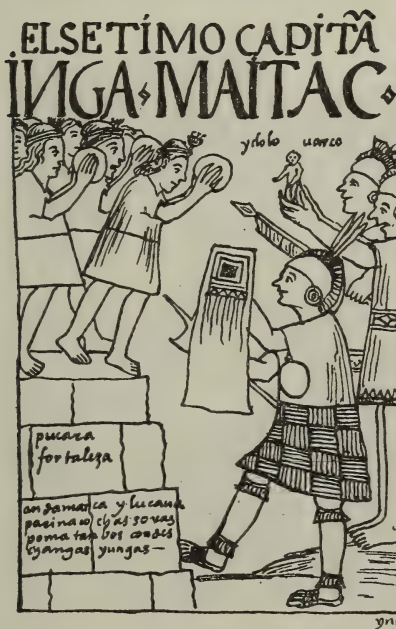 EL SETÍMO CAPITÃ
INGA·MAITAC·
ydolo uarco
pucara
fortalesa
andamarca y lucana
parinaco chas soras
poma tanbos condes
changas yungas—